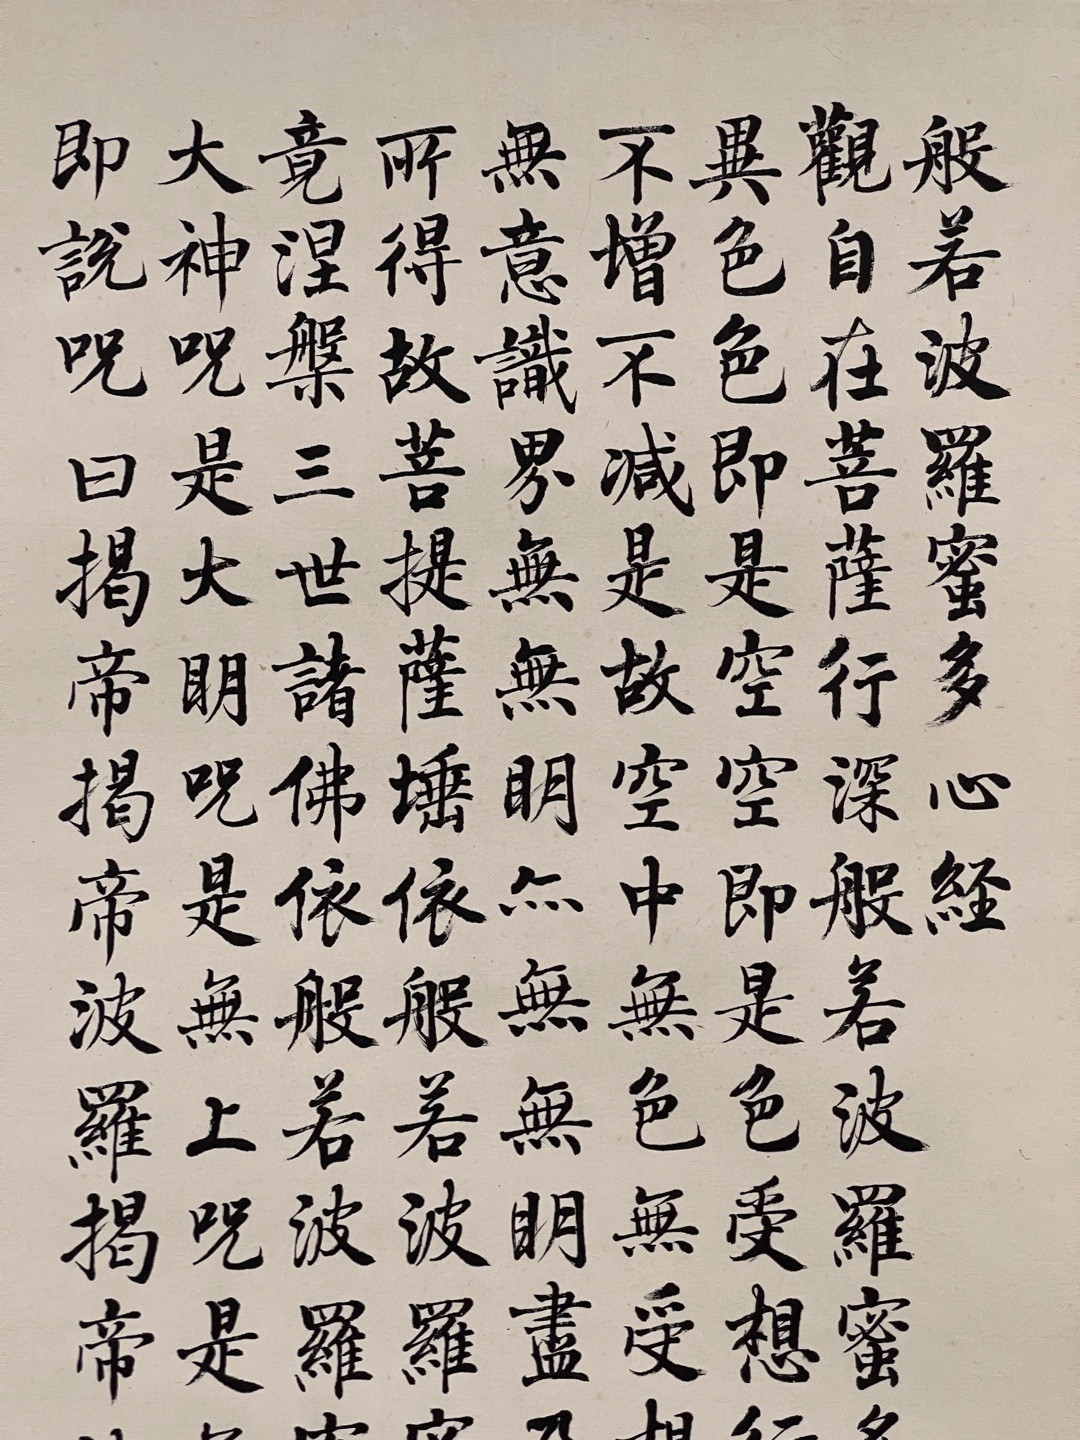 般若波羅蜜多心経
觀自在菩薩行深般若波羅蜜多
異色色即是空空即是色受想行
不增不减是故空中無色無受想
無意識界無無明亦無無明盡乃
所得故菩提薩埵依般若波羅蜜
竟涅槃三世諸佛依般若波羅蜜
大神呪是大明呪是無上呪是
即說呪曰揭帝揭帝波羅揭帝